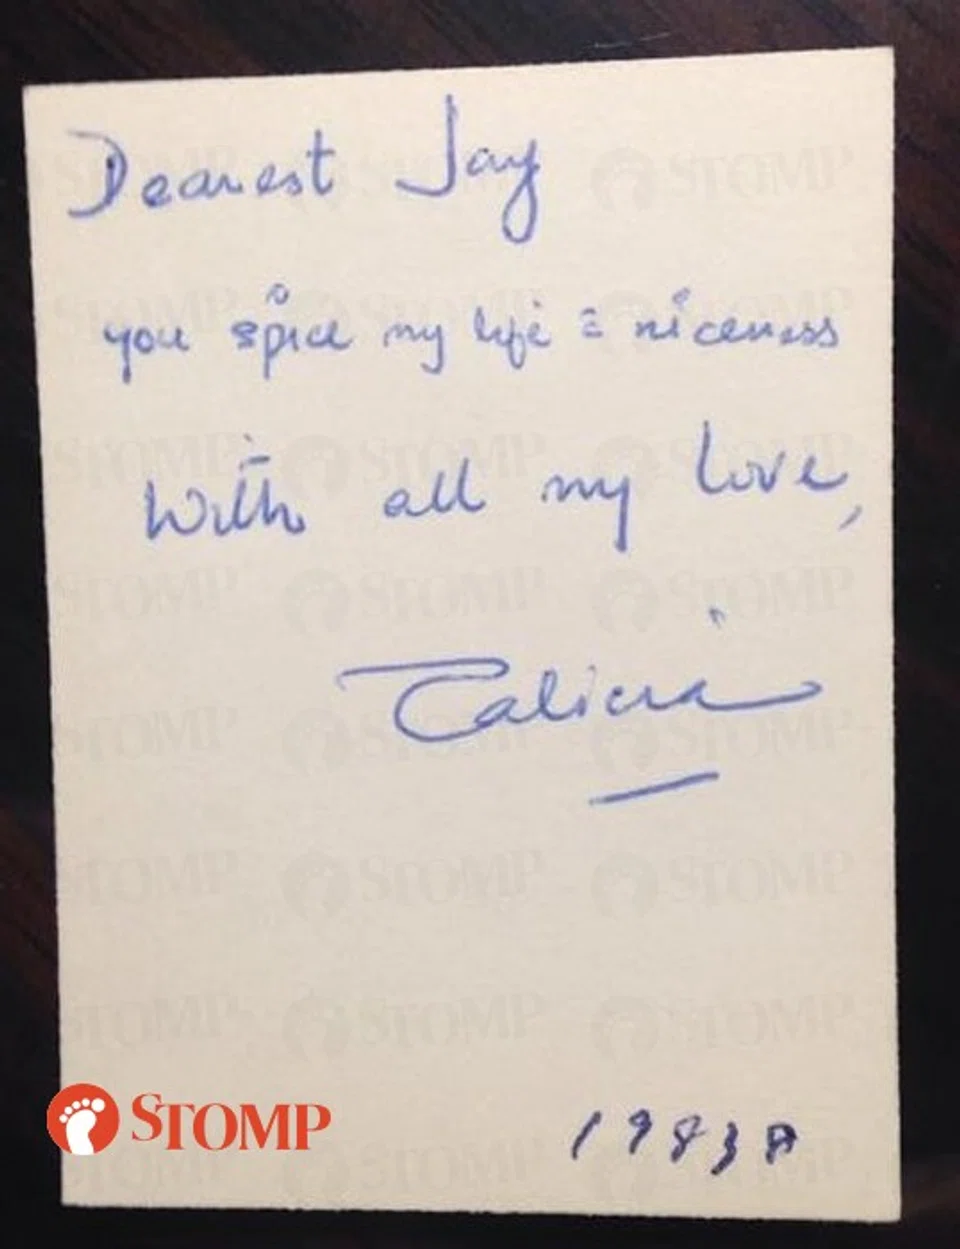 Dearest Jay
you spice my life = niceness
With all my love,
Talicia
STOMP
1983A